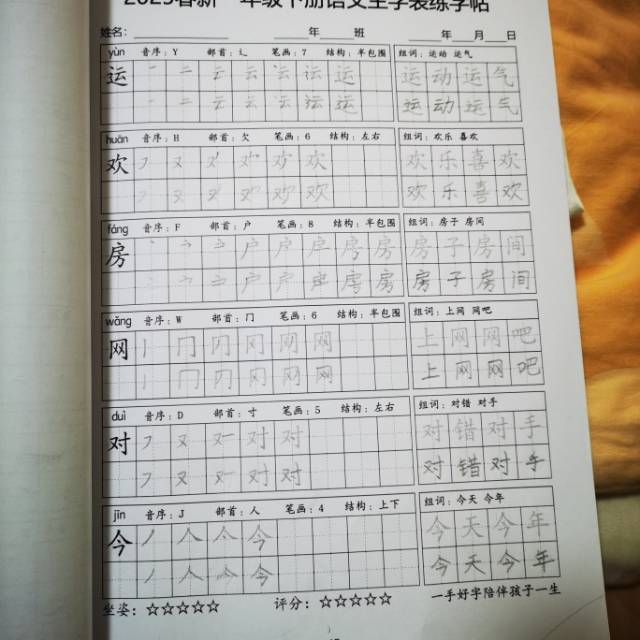 2025春新一年级下册语文生字表练字帖
姓名：　年　班　年　月　日
yùn 音序：Y 部首：辶 笔画：7 结构：半包围 组词：运动 运气
运 运动运气
运动运气
huān 音序：H 部首：欠 笔画：6 结构：左右 组词：欢乐 喜欢
欢 欢乐喜欢
欢乐喜欢
fáng 音序：F 部首：户 笔画：8 结构：半包围 组词：房子 房间
房 房子房间
房子房间
wǎng 音序：W 部首：冂 笔画：6 结构：半包围 组词：上网 网吧
网 上网网吧
上网网吧
duì 音序：D 部首：寸 笔画：5 结构：左右 组词：对错 对手
对 对错对手
对错对手
jīn 音序：J 部首：人 笔画：4 结构：上下 组词：今天 今年
今 今天今年
今天今年
坐姿：☆☆☆☆☆ 评分：☆☆☆☆☆ 一手好字陪伴孩子一生